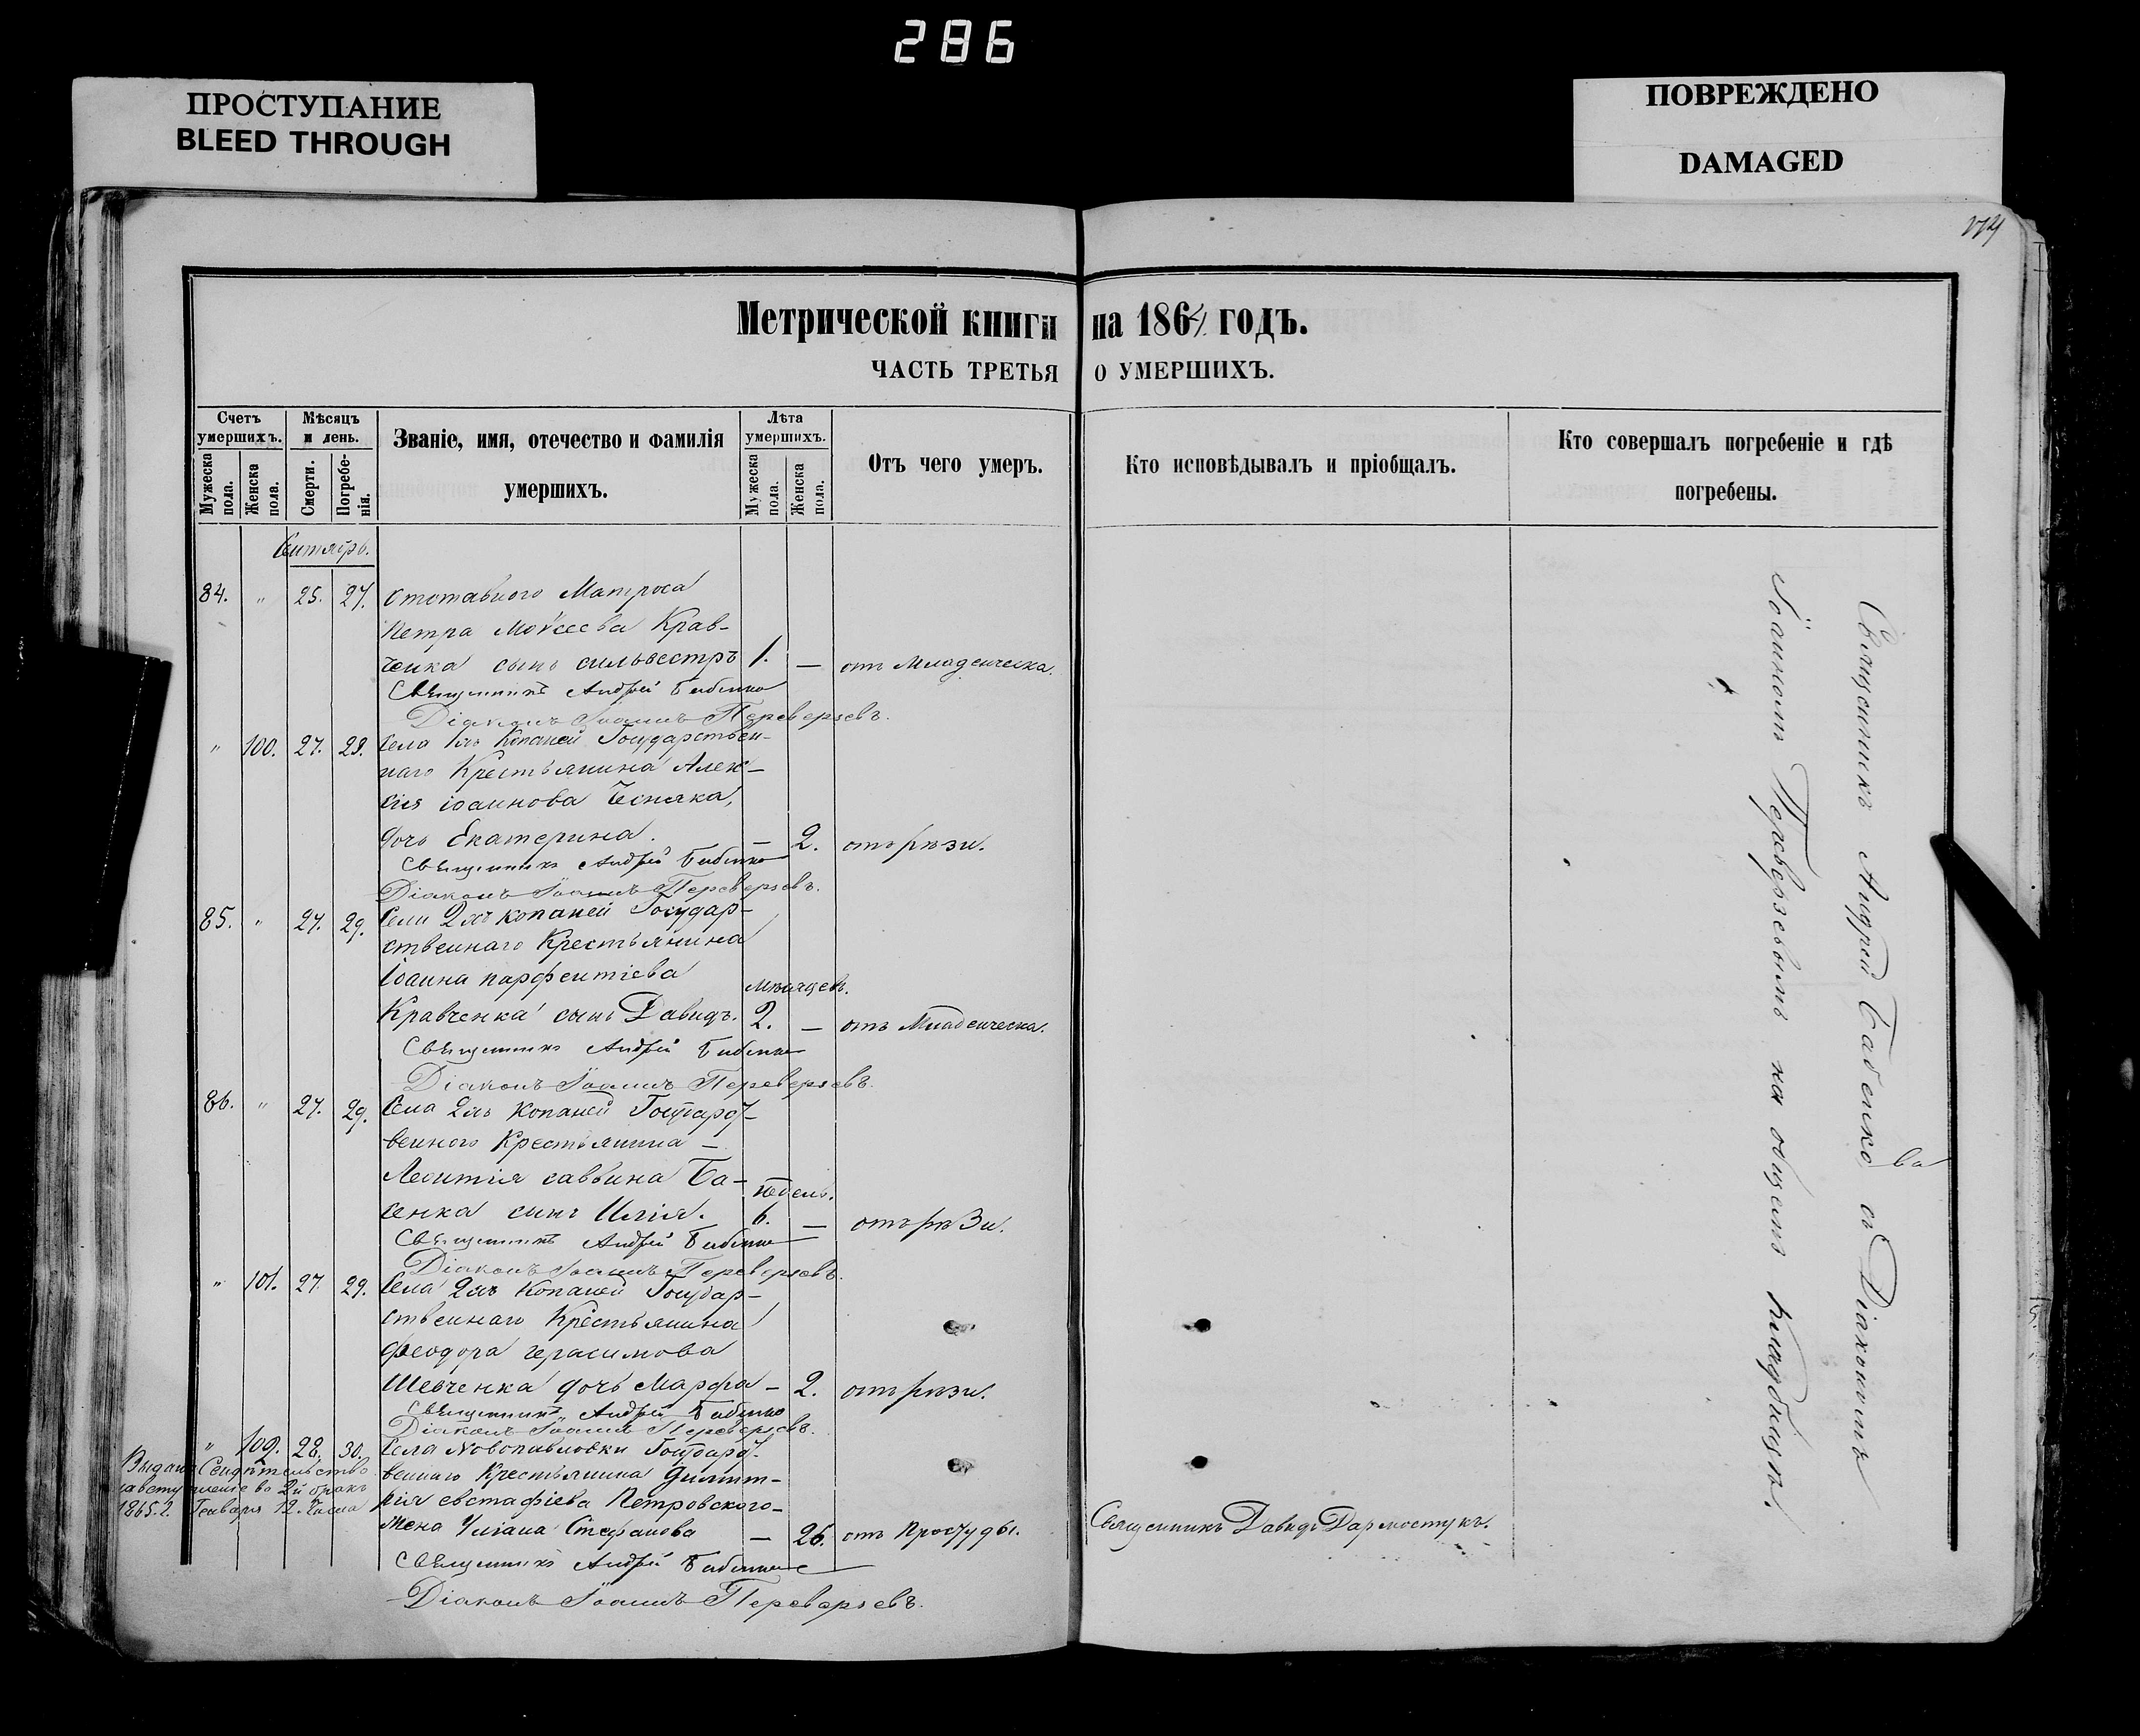 286
ПРОСТУПАНИЕ
BLEED THROUGH
ПОВРЕЖДЕНО
DAMAGED
Метрической книги на 1864 годъ.
ЧАСТЬ ТРЕТЬЯ О УМЕРШИХЪ.
Счетъ умершихъ.
Мужеска пола.
Женска пола.
Мѣсяцъ и день.
Смерти.
Погребенія.
Званіе, имя, отечество и фамилія умершихъ.
Лѣта умершихъ.
Мужеска пола.
Женска пола.
Отъ чего умеръ.
Кто исповѣдывалъ и пріобщалъ.
Кто совершалъ погребеніе и гдѣ погребены.
84. " 25. 27. отставного Матроса
Петра Моѵсеева Крав-
ченка сынъ сильвестръ 1. — отъ Младенческа.
Священникъ Андрей Бабенко
Діаконъ Іоаннъ Переверзевъ.
" 100. 27. 29. Села Копаней Государствен-
наго Крестьянина Алек-
сія іоаннова Чесняка,
дочь Екатерина. — 2. отъ рѣзи.
Священникъ Андрей Бабенко
Діаконъ Іоаннъ Переверзевъ.
85. " 27. 29. Села 2хъ копаней Государ-
ственнаго Крестьянина
Іоанна парфентіева мѣсяцевъ.
Кравченка сынъ Давидъ. 2. — отъ Младенческа.
Священникъ Андрей Бабенко
Діаконъ Іоаннъ Переверзевъ.
86. " 27. 29. Села 2хъ копаней
венного Крестьянина —
Леонтія саввина Ба- недель.
сенка сынъ Илія. 6. — отъ рѣзи.
Священникъ Андрей Бабенко
Діаконъ Іоаннъ Переверзевъ.
" 101. 27. 29. Села 2хъ Копаней Государ-
ственнаго Крестьянина
феодора герасимова
Шевченка дочь Марфа — 2. отъ рѣзи.
Священникъ Андрей Бабенко
Діаконъ Іоаннъ Переверзевъ.
" 102. 28. 30. Села Новопавловки
веннаго Крестьянина Димит-
рія евстафіева Петровского-
Жена Уліана Стефанова — 26. отъ Простуды. Священникъ Давидъ Дармостукъ.
Священникъ Андрей Бабенко
Діаконъ Іоаннъ Переверзевъ.
Свидѣтельство
во 2й бракъ
1865. Генваря 12. Числа
Священникъ Андрей Бабенко съ Діакономъ
Іоанномъ Переверзевымъ на общемъ кладбищѣ.